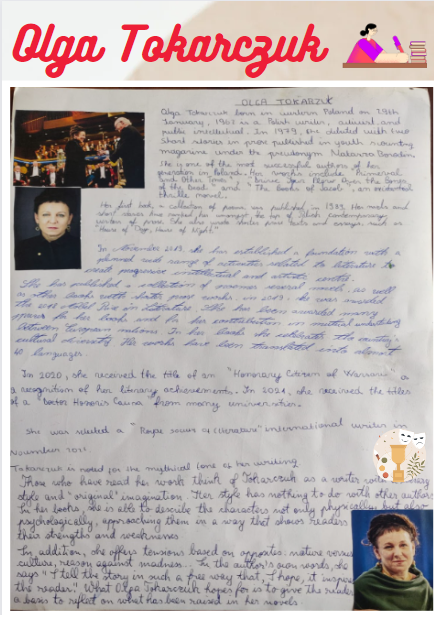 Olga Tokarczuk
OLGA TOKARZUK
Olga Tokarczuk born in western Poland on 29th
January, 1962 is a Polish writer, activist and
public intellectual. In 1979, she debuted with two
short stories in press published in youth scouting
magazine under the pseudonym Natasza Borodin.
She is one of the most successful authors of her
generation in Poland. Her works include "Primeval
and Other Times", "Drive Your Plow Over the Bones
of the Dead" and "The Books of Jacob", an
thrills novel.
Her first book, a collection of poems was published in 1989. Her novels and
short stories have her amongst the top of Polish contemporary
writers of prose. She also wrote shorter prose texts and essays, such as
"House of Day, House of Night"
In November 2019, she has established a foundation with a
planned wide range of activities related to literature to
create progressive intellectual and artistic centre.
She has published a collections of several novels, as well
as other books with shorter prose works. in 2019, she was awarded
the Nobel Prize in Literature. She has been awarded many
for her books and for her contribution on mutual understanding
between European nations. In her books she celebrate the country's
cultural diversity. Her works have been translated into almost
40 languages.
In 2020, she received the title of an "Honorary Citizen of Warsaw" a
a recognition of her literary achievements. In 2021, she received the titles
of a "Doctor Honoris Causa" from many universities.
She was elected a "Royal Society of Literature" international writer in
November 2021.
Tokarczuk is noted for the mythical tone of her writing
Those who have read her work think of Tokarczuk as a writer with a very
style and "original" imagination. Her style has nothing to do with other authors
In her books, she is able to describe the characters not only physically but also
psychologically, approaching them in a way that shows readers
their strengths and weaknesses.
In addition, she offers tensions based on opposites: nature versus
culture, reason against madness... In the author's own words, she
says "I tell the story in such a free way that, I hope, it inspires
the reader". What Olga Tokarczuk hopes for is to give the reader
a basis to reflect on what has been raised in her novels